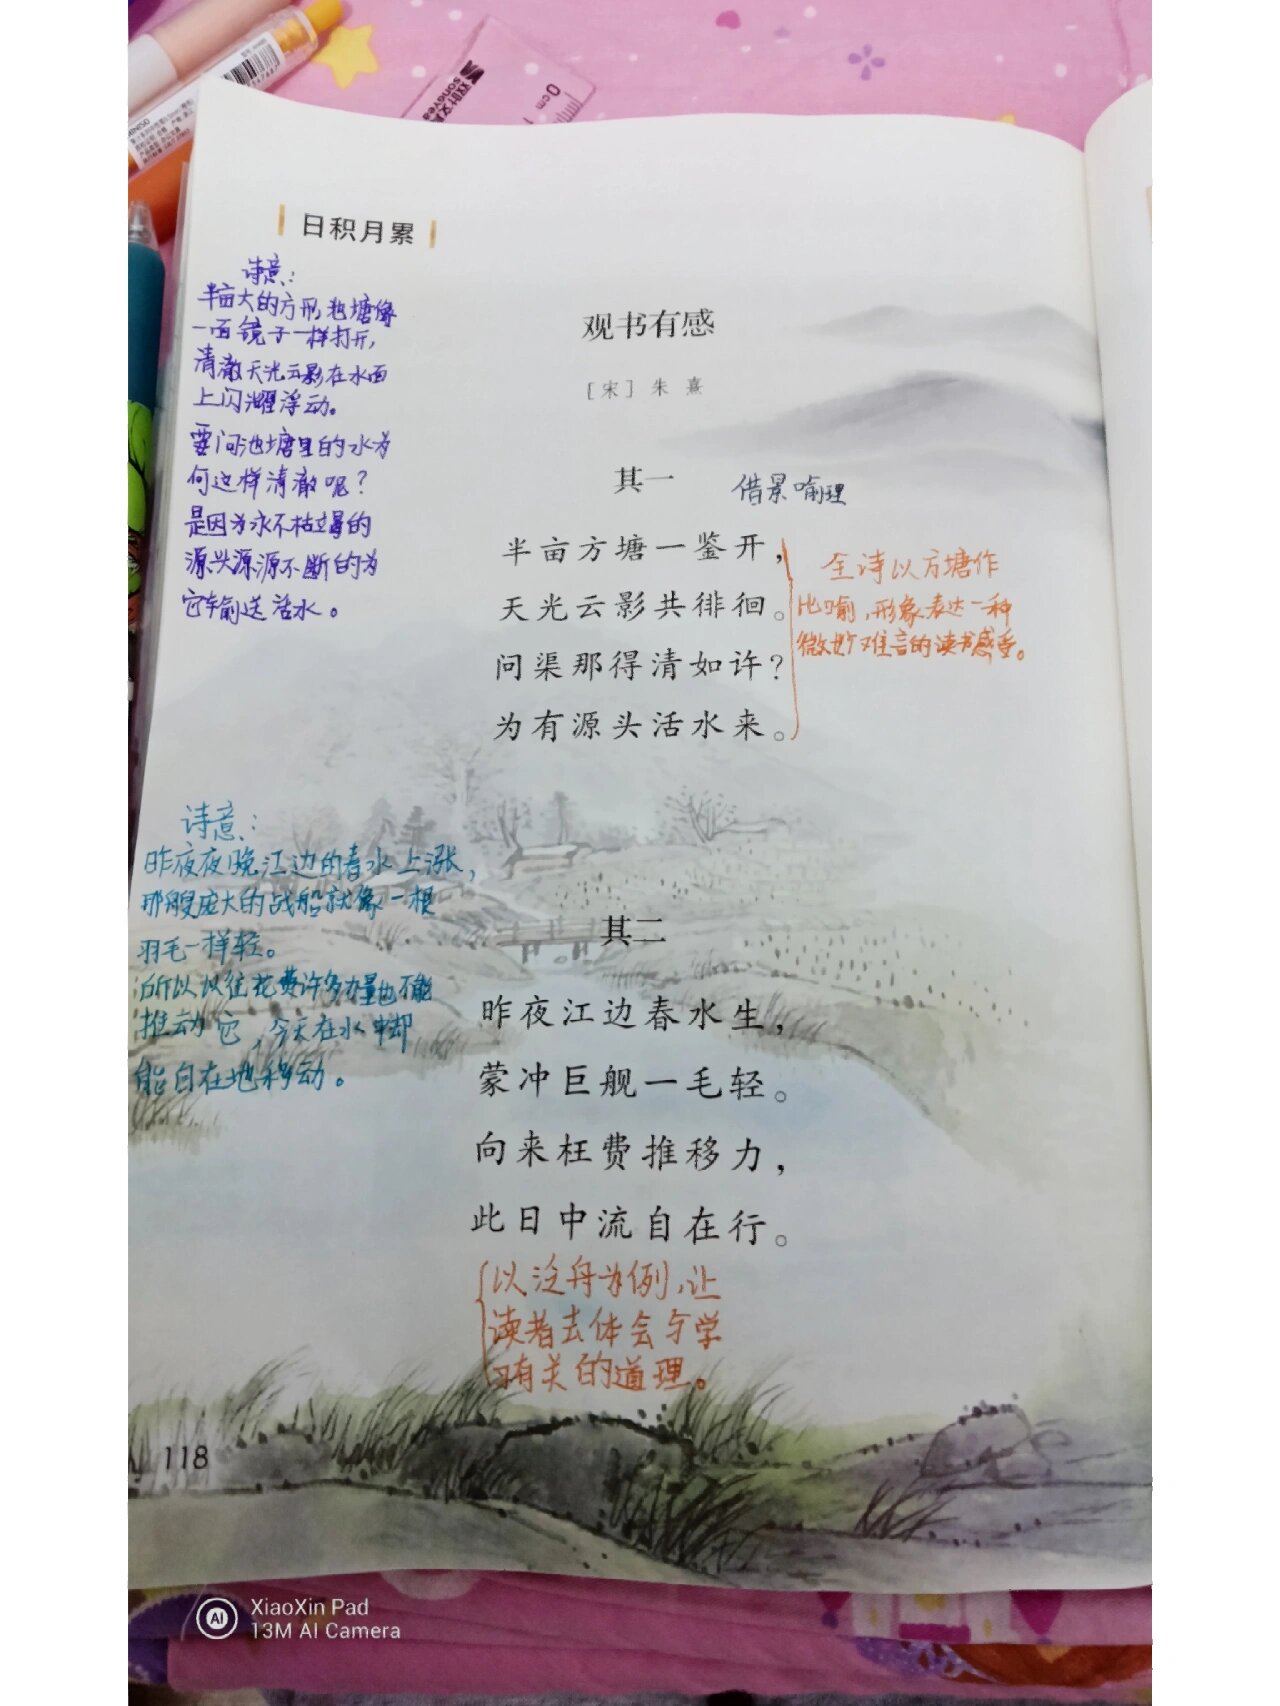 日积月累
诗意：
半亩大的方形池塘像
一面镜子一样打开，
清澈天光云影在水面
上闪耀浮动。
要问池塘里的水为
何这样清澈呢？
是因为永不枯竭的
源头源源不断的为
它输送活水。
观书有感
［宋］朱熹
其一
借景喻理
半亩方塘一鉴开，
天光云影共徘徊。
问渠那得清如许？
为有源头活水来。
全诗以方塘作
比喻，形象表达一种
微妙难言的读书感受。
诗意：
昨夜夜晚江边的春水上涨，
那艘庞大的战船就像一根
羽毛一样轻。
所以以往花费许多力量也不能
推动它，今天在水中却
能自在地移动。
其二
昨夜江边春水生，
蒙冲巨舰一毛轻。
向来枉费推移力，
此日中流自在行。
以泛舟为例，让
读者去体会与学
习有关的道理。
118
XiaoXin Pad
13M AI Camera
AI
0cm
MINISO